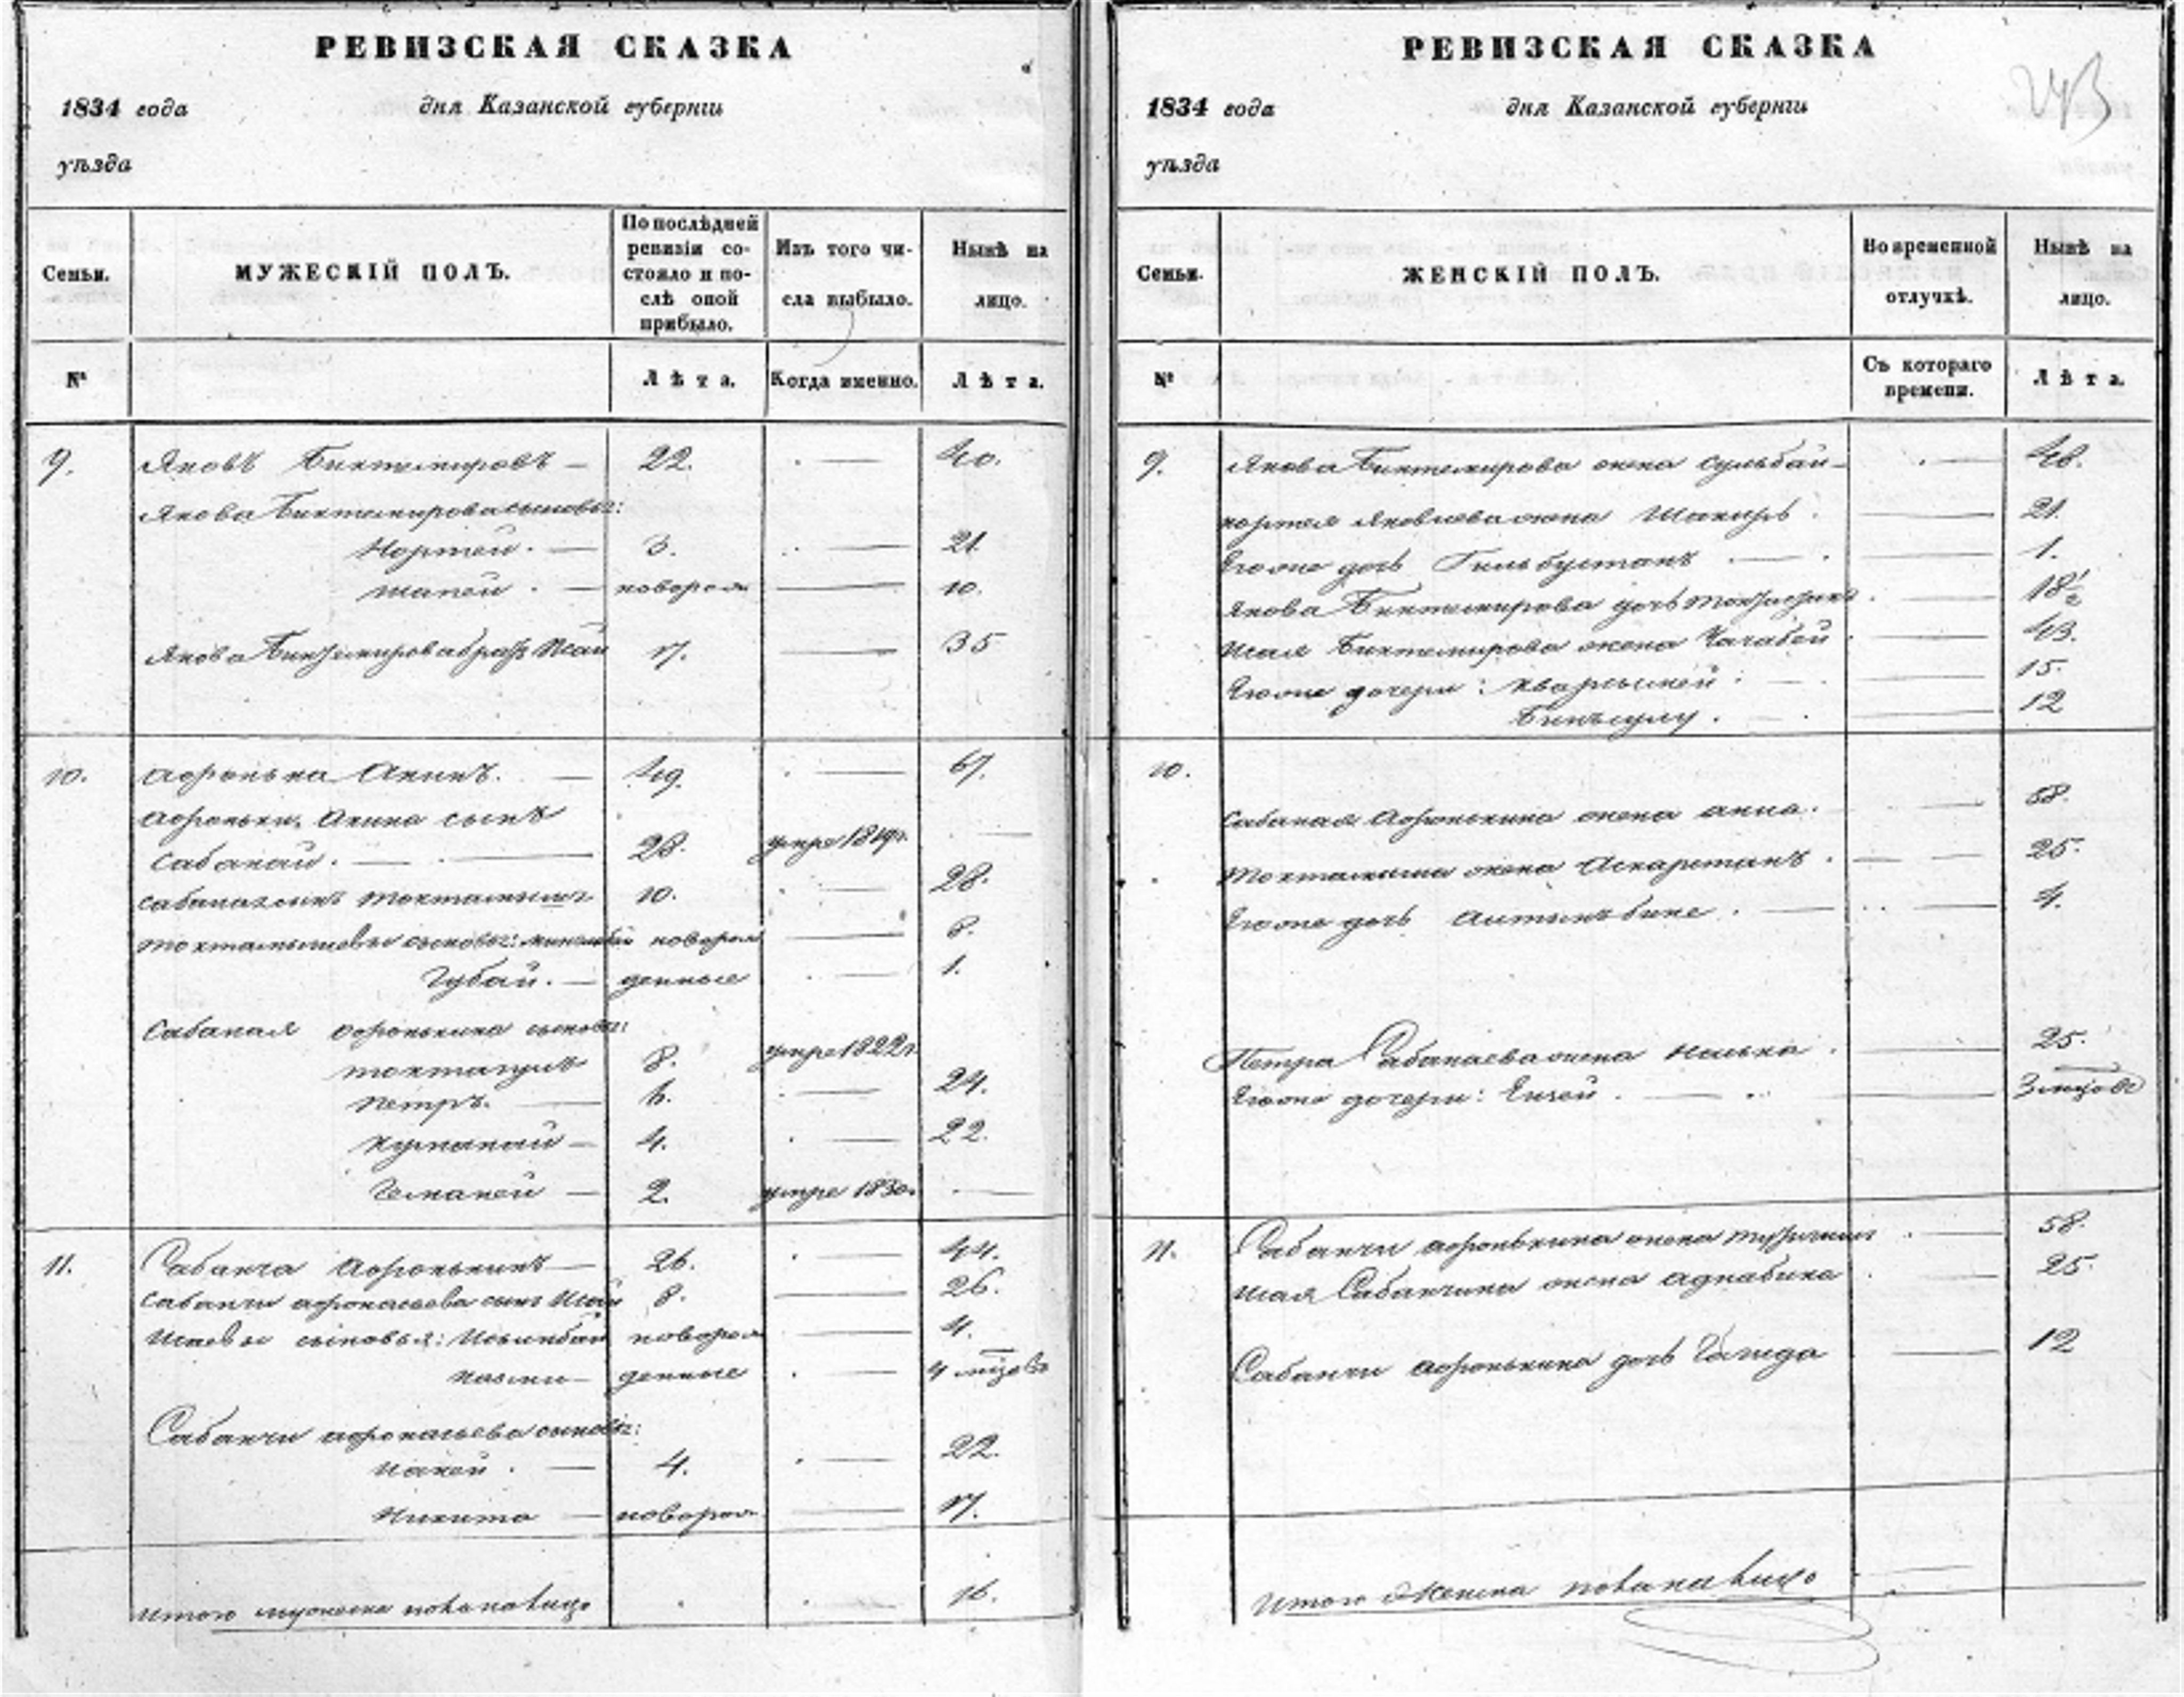 РЕВИЗСКАЯ СКАЗКА
1834 года дня Казанской губерніи
уѣзда
Семьи.
МУЖЕСКІЙ ПОЛЪ.
По послѣдней ревизіи состояло и послѣ оной прибыло.
Изъ того числа выбыло.
Нынѣ на лицо.
№
Лѣта.
Когда именно.
Лѣта.
9. Яковъ Биктемировъ — 22. — 40.
Якова Биктемирова сыновья:
Нортей. — 3. — 21.
Шапей. — новорож — 10.
Якова Биктемирова братъ Исай 17. — 35
10. Афонька Акинъ. — 49. — 67.
Афоньки Акина сынъ
Сабанай. — 28. умре 1819г. —
Сабаная сынъ Тохтамышъ 10. — 28.
Тохтамышевы сыновья: новорож — 8.
Губай. — денные — 1.
Сабаная Афонькина сыновья:
Тохтагулъ 8. умре 1822г.
Петръ. — 6. — 24.
Курнакай — 4. — 22.
Теманей — 2. умре 1830. —
11. Сабанча Афонькинъ — 26. — 44.
Сабанчи Афонасьева сынъ Исай 8. — 26.
Исаевы сыновья: Исынбай новорож — 4.
денные — 4 мѣсяцовъ
Сабанчи Афонасьева сыновья:
Иакей. — 4. — 22.
Никита — новорож — 17.
Итого мужеска пола на лицо 16.
РЕВИЗСКАЯ СКАЗКА
243
1834 года дня Казанской губерніи
уѣзда
Семьи.
ЖЕНСКІЙ ПОЛЪ.
Во временной отлучкѣ.
Нынѣ на лицо.
№
Съ котораго времени.
Лѣта.
9. Якова Биктемирова жена Сульбай — 46.
Нортея Яковлева жена Шакирь. — 21.
Его же дочь Гильбустанъ — 1.
Якова Биктемирова дочь — 18½
Исая Биктемирова жена Чачабей — 43.
Его же дочери: — 15.
Бикъсулу. — 12
10.
Сабаная Афонькина жена Анна. — 58.
Тохтамыша жена Аскарстанъ. — 25.
Его же дочь Алтынъбике. — 4.
Петра Сабанаева жена — 25.
Его же дочери: Ензей. — 3 мѣсяцовъ
11. Сабанчи Афонькина жена — 58.
Исая Сабанчина жена Аднабика — 25.
Сабанчи Афонькина дочь — 12
Итого женска пола на лицо